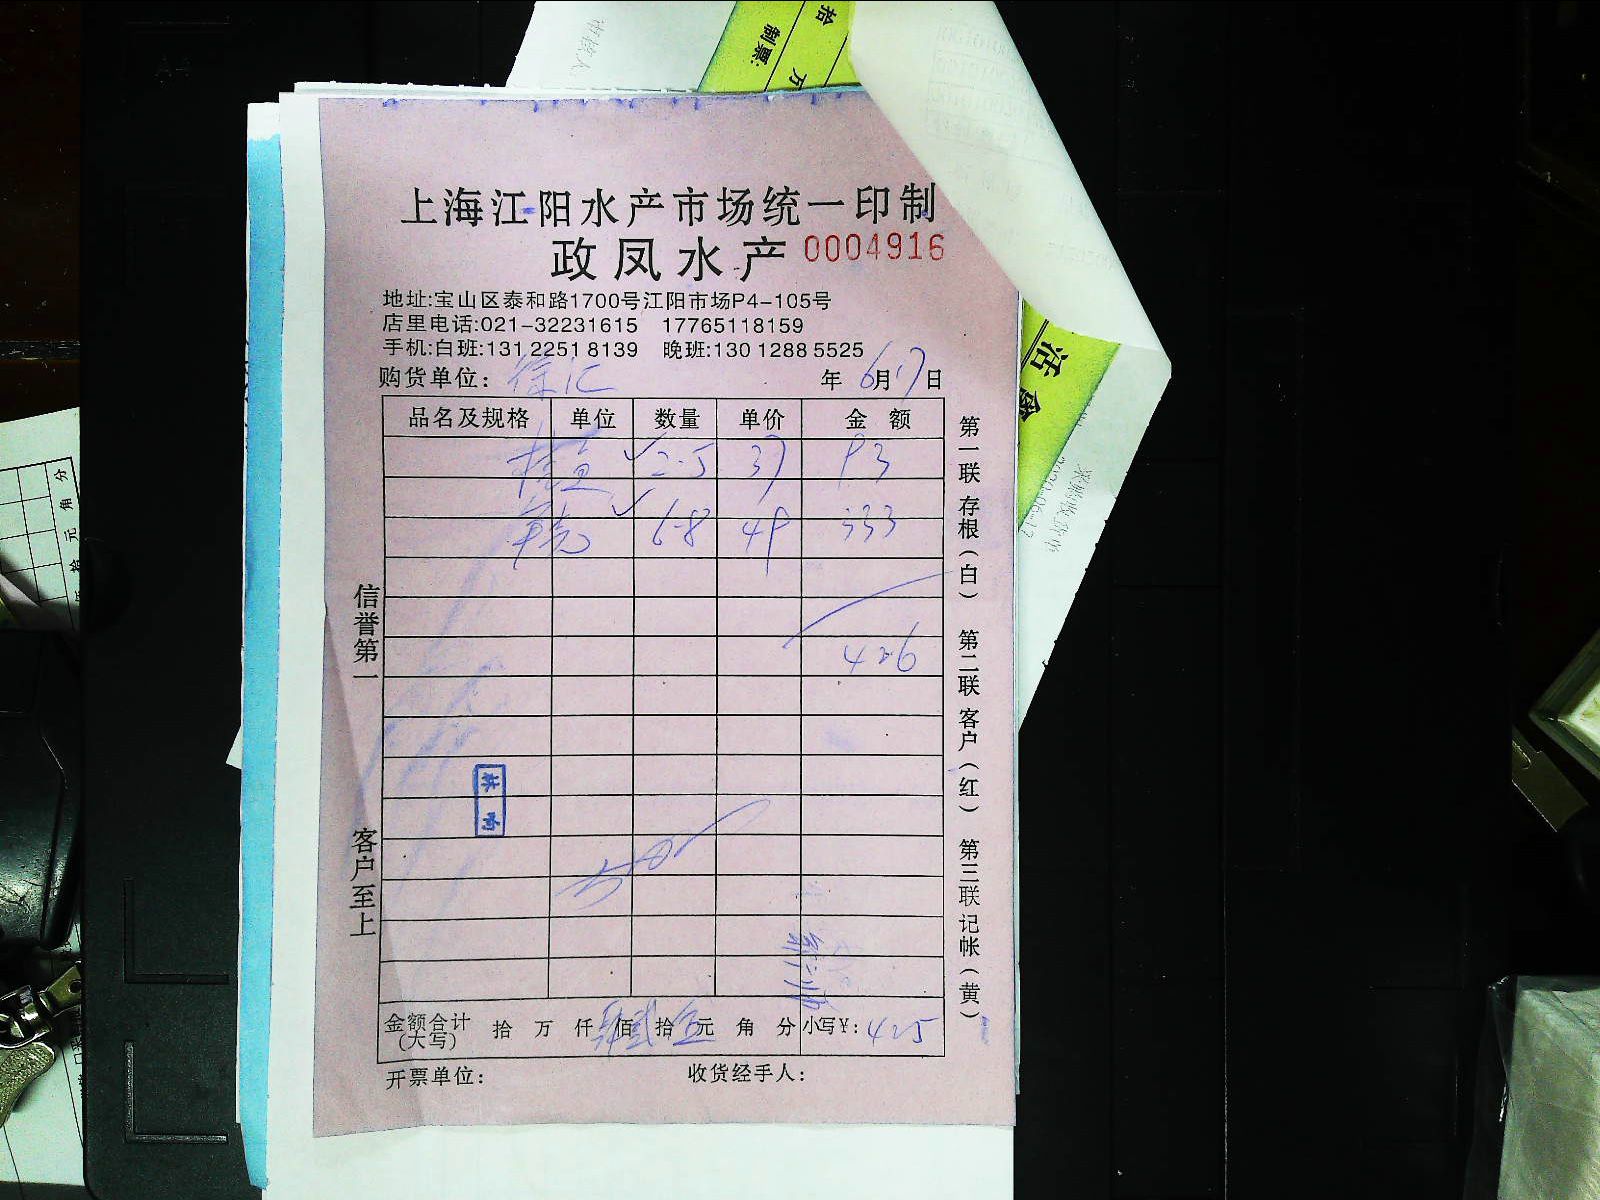 上海江阳水产市场统一印制
政凤水产 0004916
地址:宝山区泰和路1700号江阳市场P4-105号
店里电话:021-32231615 17765118159
手机:白班:131 2251 8139 晚班:130 1288 5525
购货单位: 徐汇 年 6月17日
品名及规格 单位 数量 单价 金 额
2.5 37 93
6.8 49 333
426
金额合计(大写) 拾 万 仟 肆 佰 贰 拾 伍 元 角 分 小写¥: 425
开票单位: 收货经手人:
信誉第一
客户至上
第一联 存根(白) 第二联 客户(红) 第三联 记帐(黄)
拾
万
制票:
活
2020-06-17
分
角
元
拾